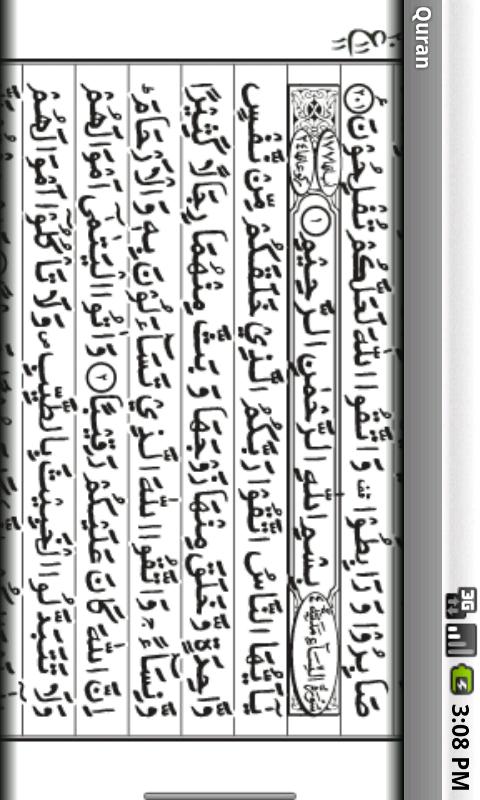 3:08 PM
3G
Quran
صَابِرُوْا وَرَابِطُوْا ۫ وَاتَّقُوا اللّٰهَ لَعَلَّكُمْ تُفْلِحُوْنَ ۧ ﴿٢٠١﴾
سُوْرَةُ النِّسَآءِ مَدَنِيَّةٌ بِسْمِ اللّٰهِ الرَّحْمٰنِ الرَّحِيْمِ ﴿١﴾
يٰۤاَيُّهَا النَّاسُ اتَّقُوْا رَبَّكُمُ الَّذِيْ خَلَقَكُمْ مِّنْ نَّفْسٍ
وَّاحِدَةٍ وَّخَلَقَ مِنْهَا زَوْجَهَا وَبَثَّ مِنْهُمَا رِجَالًا كَثِيْرًا
وَّنِسَآءً ۚ وَاتَّقُوا اللّٰهَ الَّذِيْ تَسَآءَلُوْنَ بِهٖ وَالْاَرْحَامَ ؕ
اِنَّ اللّٰهَ كَانَ عَلَيْكُمْ رَقِيْبًا ﴿٢﴾ وَاٰتُوا الْيَتٰمٰۤى اَمْوَالَهُمْ
وَلَا تَتَبَدَّلُوا الْخَبِيْثَ بِالطَّيِّبِ ۪ وَلَا تَاْكُلُوْۤا اَمْوَالَهُمْ